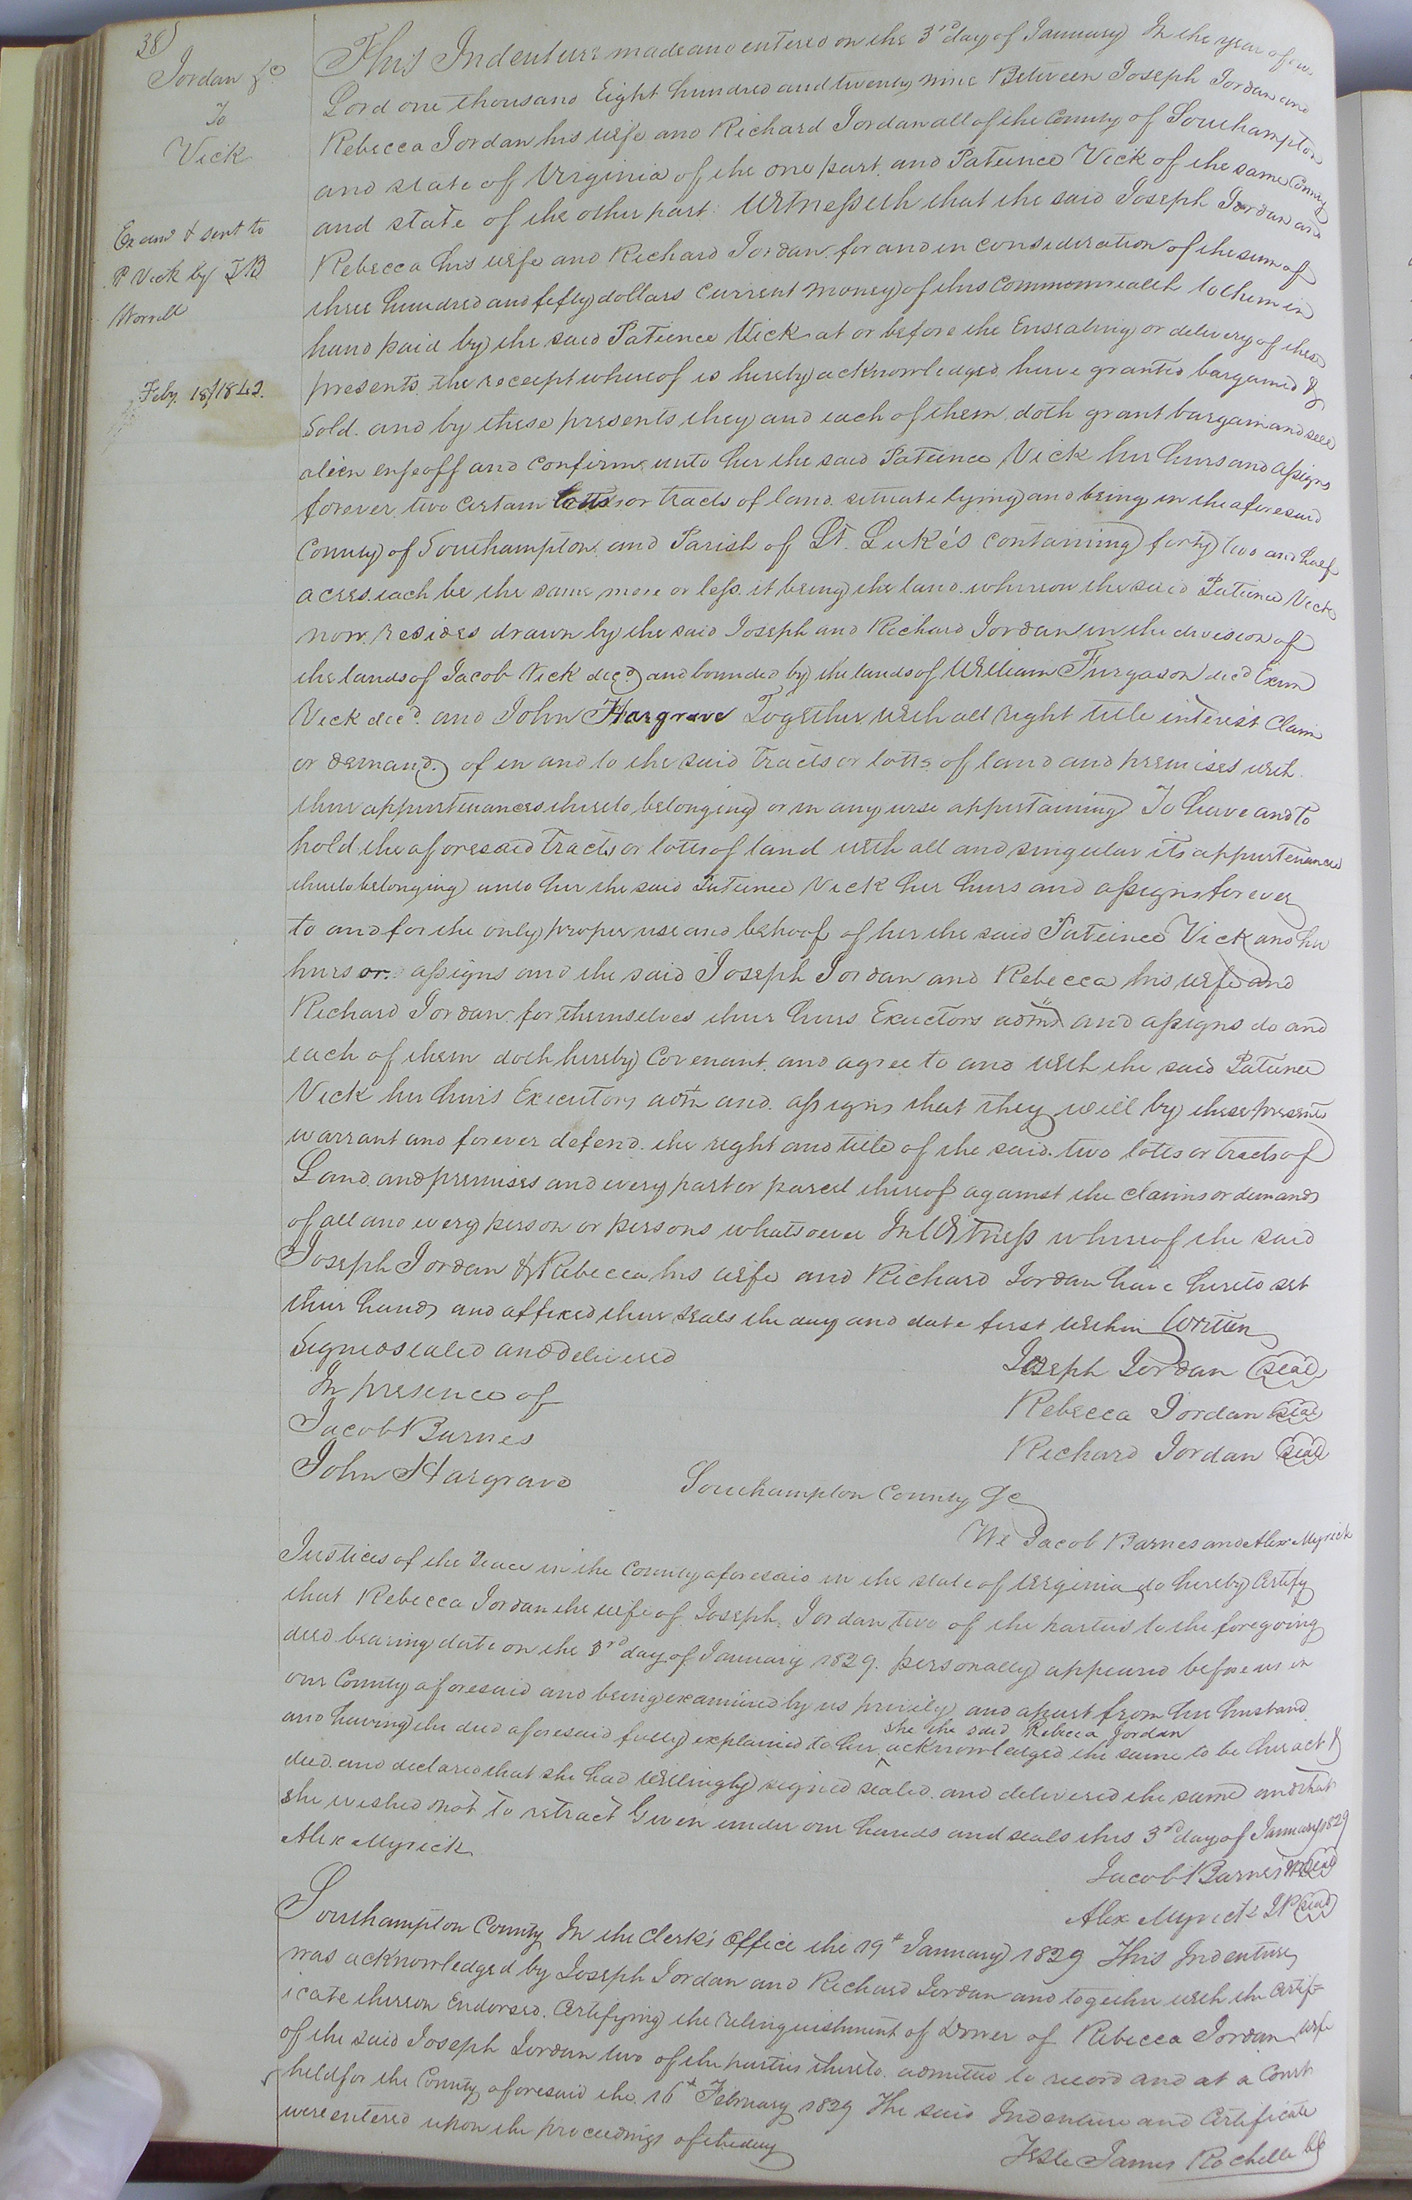 38)
Jordan &c
To
Vick
Exam'd & sent to
P Vick by J B
Worrell
Feby 18/1842.
This Indenture made and entered on the 3rd day of January In the year of our
Lord one thousand Eight hundred and twenty nine Between Joseph Jordan and
Rebecca Jordan his wife and Richard Jordan all of the County of Southampton
and state of Virginia of the one part, and Patience Vick of the same County
and state of the other part. Witnesseth that the said Joseph Jordan and
Rebecca his wife and Richard Jordan for and in consideration of the sum of
three hundred and fifty dollars Current money of this Commonwealth to them in
hand paid by the said Patience Vick at or before the Ensealing or delivery of these
presents, the receipt whereof is hereby acknowledged have granted bargained &
Sold. and by these presents they and each of them doth grant bargain and sell
alien enfeoff and confirm unto her the said Patience Vick her heirs and assigns
forever two certain lotts or tracts of land situate lying and being in the aforesaid
County of Southampton and Parish of St. Luke's containing forty two and half
acres each be the same more or less it being the land whereon the said Patience Vick
now resides drawn by the said Joseph and Richard Jordan in the division of
the lands of Jacob Vick decd and bounded by the lands of William Furgason decd Exum
Vick decd. and John Hargrave Together with all right title interest Claim
or demand of in and to the said tracts or lotts of land and premises with
their appurtenances thereto belonging or in any wise appertaining To have and to
hold the aforesaid tracts or lotts of land with all and singular its appurtenances
thereto belonging unto her the said Patience Vick her heirs and assigns forever
to and for the only proper use and behoof of her the said Patience Vick and her
heirs or assigns and the said Joseph Jordan and Rebecca his wife and
Richard Jordan for themselves their heirs Exectors admrs and assigns do and
each of them doth hereby Covenant and agree to and with the said Patience
Vick her heirs Executors adm and assigns that they will by these presents
warrant and forever defend the right and title of the said two lotts or tracts of
Land and premises and every part or parcel thereof against the claims or demands
of all and every person or persons whatsoever In Witness whereof the said
Joseph Jordan & Rebecca his wife and Richard Jordan have hereto set
their hands and affixed their seals the day and date first within Written
Signed sealed and delivered
In presence of
Jacob Barnes
John Hargrave
Joseph Jordan (seal)
Rebecca Jordan (seal)
Richard Jordan (seal)
Southampton County Sc
We Jacob Barnes and Alex Myrick
Justices of the Peace in the County aforesaid in the state of Virginia do hereby Certify
that Rebecca Jordan the wife of Joseph Jordan two of the parties to the foregoing
deed bearing date on the 3rd day of January 1829. personally appeared before us in
our County aforesaid and being examined by us privily and apart from her husband
and having the deed aforesaid fully explained to her she the said Rebecca Jordan acknowledged the same to be her act &
deed and declared that she had willingly signed sealed and delivered the same and that
she wished not to retract Given under our hands and seals this 3rd day of January 1829
Alex Myrick
Jacob Barnes (seal)
Alex Myrick JP (seal)
Southampton County In the Clerk's Office the 19th January 1829 This Indenture
was acknowledged by Joseph Jordan and Richard Jordan and together with the Certif=
icate thereon Endorsed Certifying the relinquishment of Dower of Rebecca Jordan wife
of the said Joseph Jordan two of the parties thereto admitted to record and at a Court
held for the County aforesaid the 16th February 1829 The said Indenture and Certificate
were entered upon the proceedings of the day
Teste James Rochelle CC